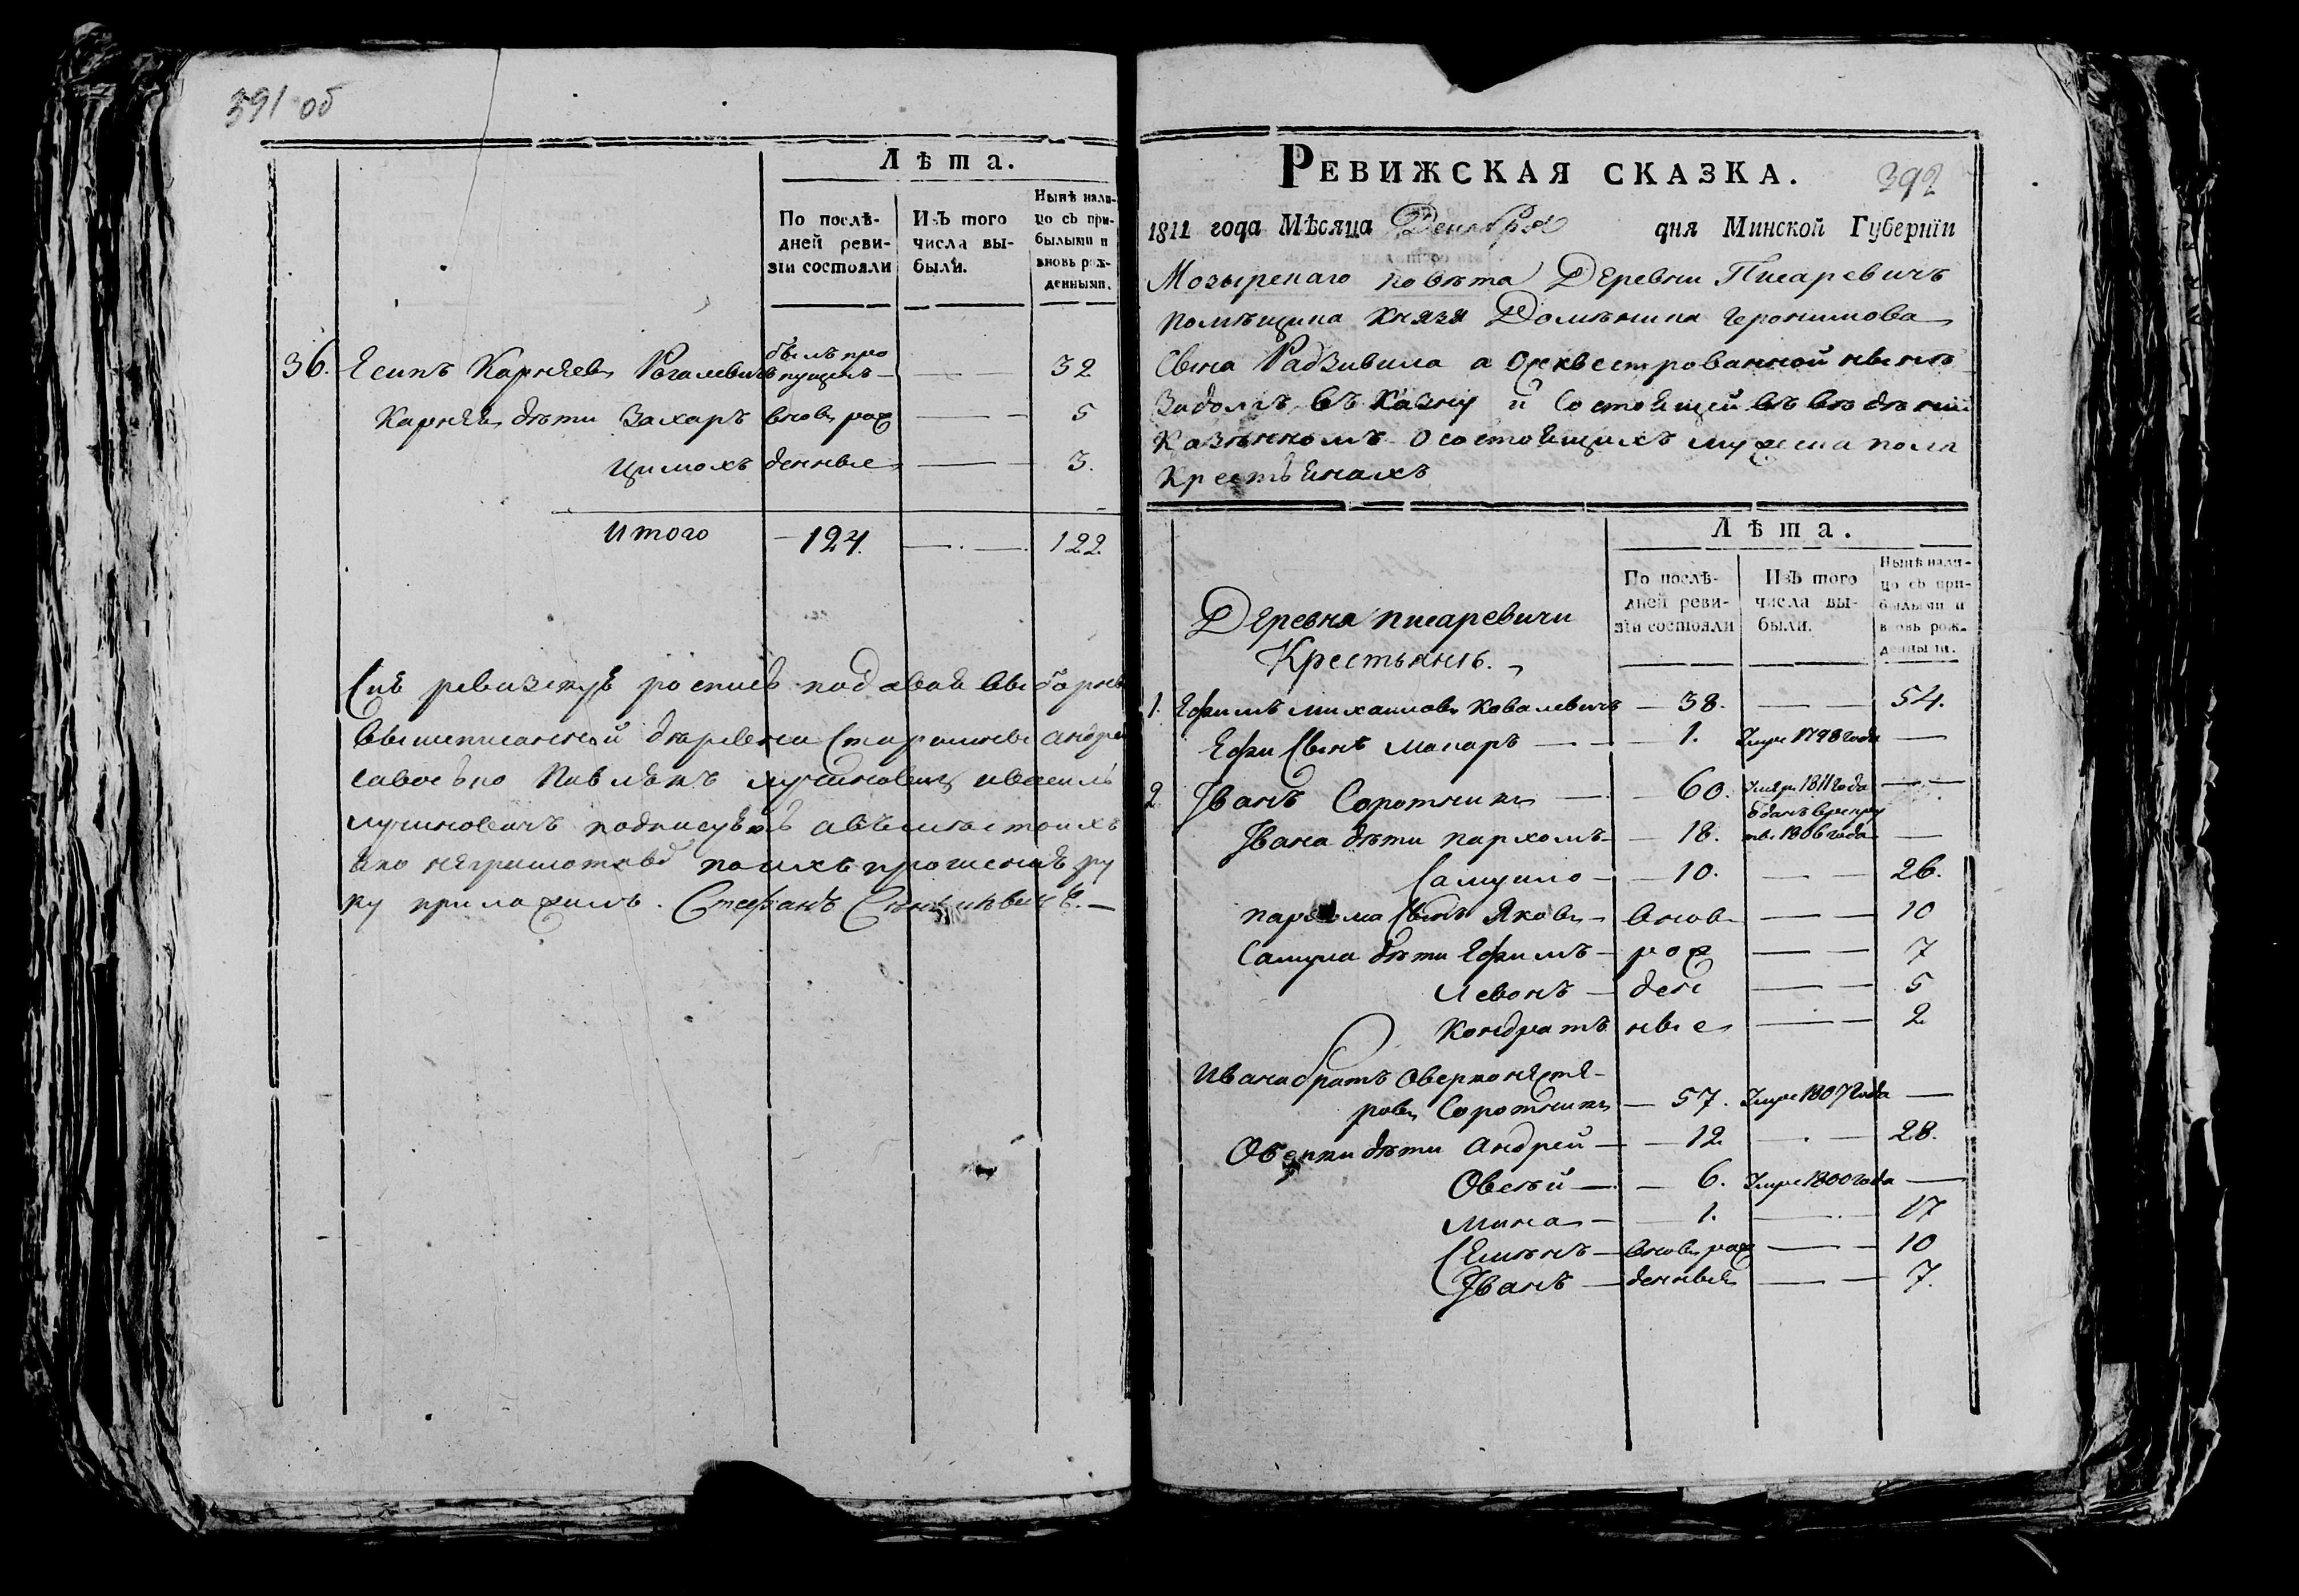 391 об
Лѣта.
По послѣ-
дней реви-
зіи состояли
Изъ того
числа вы-
были.
Нынѣ нали-
цо съ при-
былыми и
вновь рож-
денными.
36. Есипъ Карнѣевъ Рогалевичъ былъ про пущенъ — — — 32
Карнѣя дѣти Захаръ вновь рож — — 5
Цимохъ денные — — 3.
Итого — 124. — — 122.
Сию ревизскую роспись подавая выборные
вышеписанной деревни Старшины Андре
Павлюкъ Лучиновичъ
Лучиновичъ подписуемъ а вместо ихъ
яко неграмотных по ихъ прошению ру
ку приложилъ. Стефанъ
РЕВИЖСКАЯ СКАЗКА. 392
1811 года Мѣсяца Декабря дня Минской Губерніи
Мозырскаго повѣта Деревни Писаревичъ
помѣщика Князя Доминика Геронимова
Сына Радзивила а Секвестрованной нынѣ
въ Казну и Состоящей въ вѣдѣнии
Казенномъ о состоящихъ мужеска пола
Крестьянахъ
Лѣта.
По послѣ-
дней реви-
зіи состояли
Изъ того
числа вы-
были.
Нынѣ нали-
цо съ при-
былыми и
вновь рож-
денными.
Деревня Писаревичи
Крестьянѣ.
1. Ефимъ Михаиловъ Ковалевичъ — 38. — — 54.
Ефи Сынъ Макаръ — — 1. Умре 1798 года —
2 Іванъ Соротникъ — — 60. Умре 1811 года — —
Івана дѣти Пархомъ — 18. Отданъ врекру тъ. 1806 года —
Самуило — — 10. — — 26.
Пархома Сынъ Яковъ — вновь — — 10
Самуила дѣти Ефимъ — рож — — 7
Левонъ — ден — — 5
Кондратъ ные — — 2
Ивана братъ Оверко Несте-
ровъ Соротникъ — 57. Умре 1807 года —
Оверки дѣти Андрей — — 12 — — 28.
Овсѣй — — 6. Умре 1800 года —
Мина — — 1. — — 17
Семѣнъ — вновь рож — — 10
Іванъ — денныя — — 7.